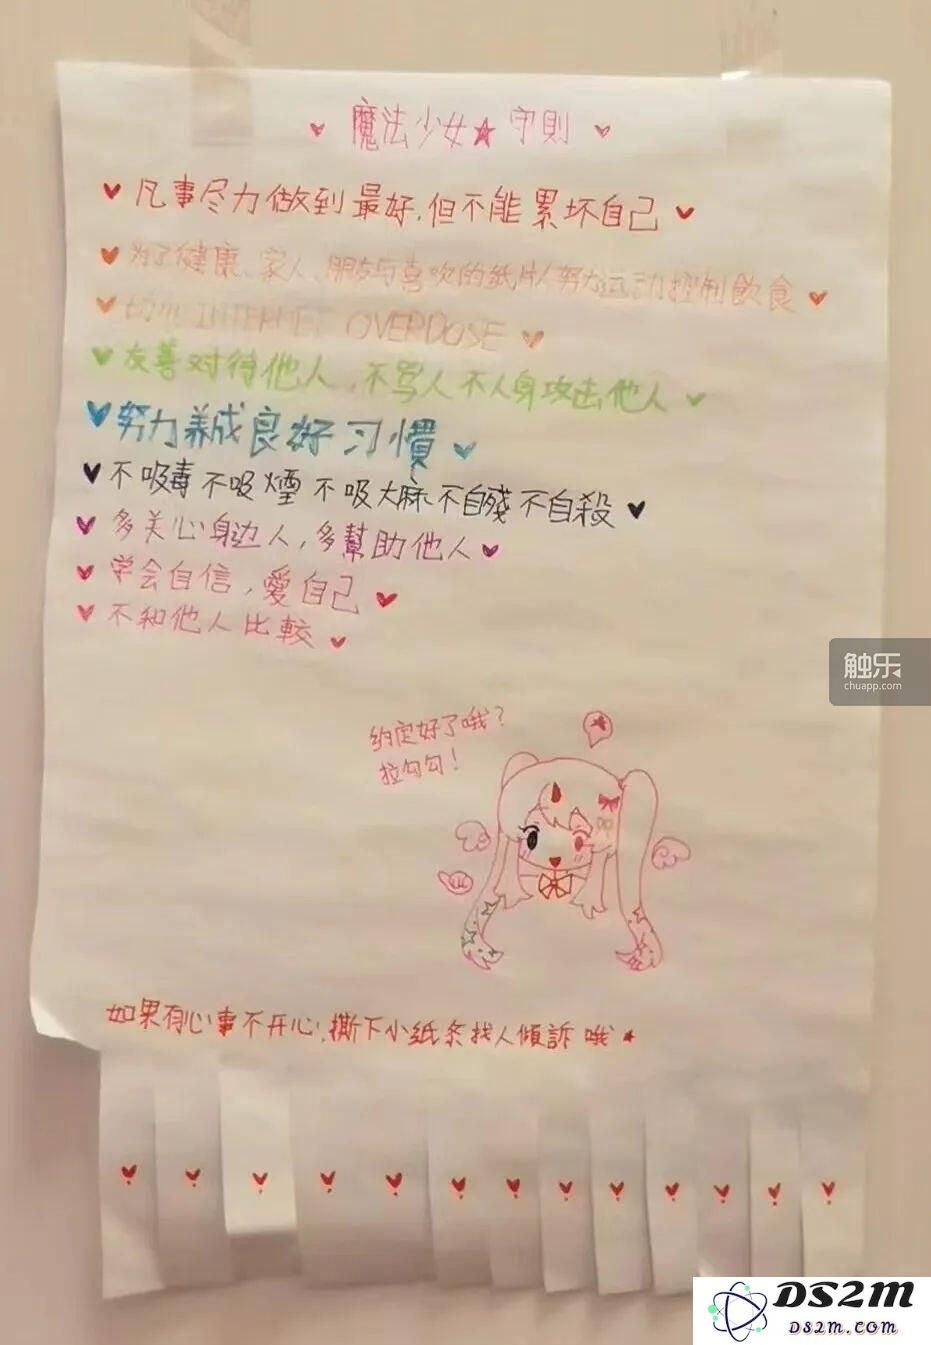 魔法少女★守則
凡事尽力做到最好,但不能累坏自己
为了健康、家人、朋友与喜欢的纸片人努力运动控制飲食
切勿INTERNET OVERDOSE
友善对待他人,不骂人不人身攻击他人
努力养成良好习慣
不吸毒不吸煙不吸大麻不自殘不自殺
多关心身边人,多幫助他人
学会自信,愛自己
不和他人比較
约定好了哦?
拉勾勾!
如果有心事不开心,撕下小纸条找人傾訴哦★
触乐
chuapp.com
DS2M
DS2M.COM